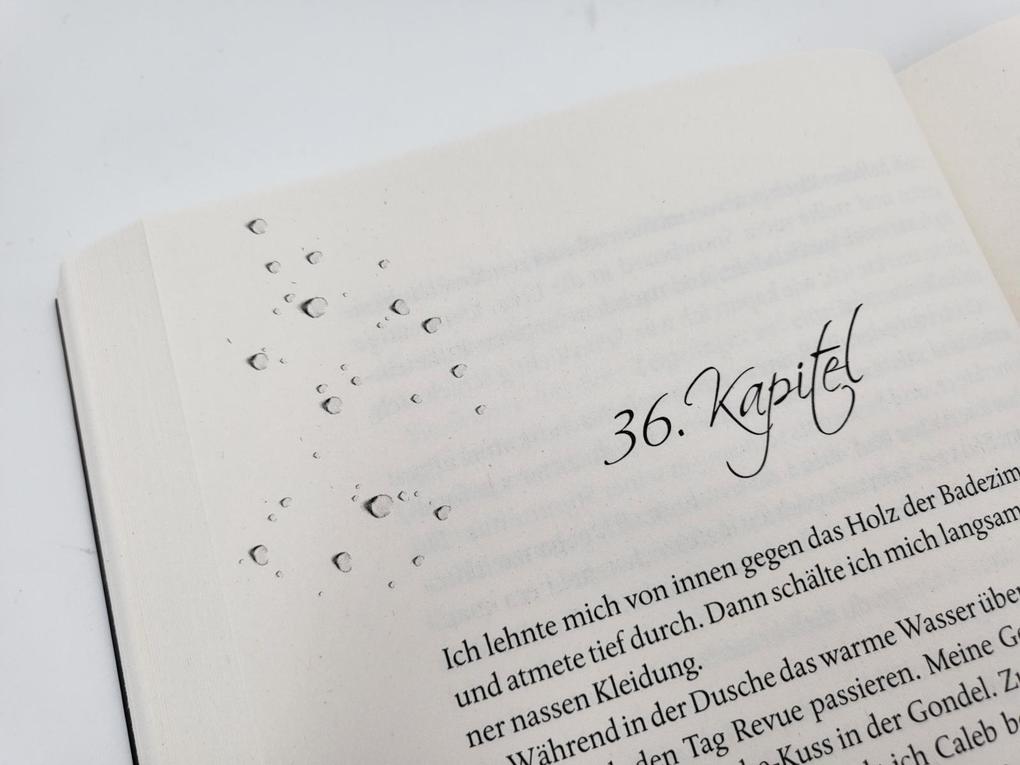 36. Kapitel
Ich lehnte mich von innen gegen das Holz der Badezim
und atmete tief durch. Dann schälte ich mich langsam
ner nassen Kleidung.
Während in der Dusche das warme Wasser über
den Tag Revue passieren. Meine
Kuss in der Gondel.
ich Caleb